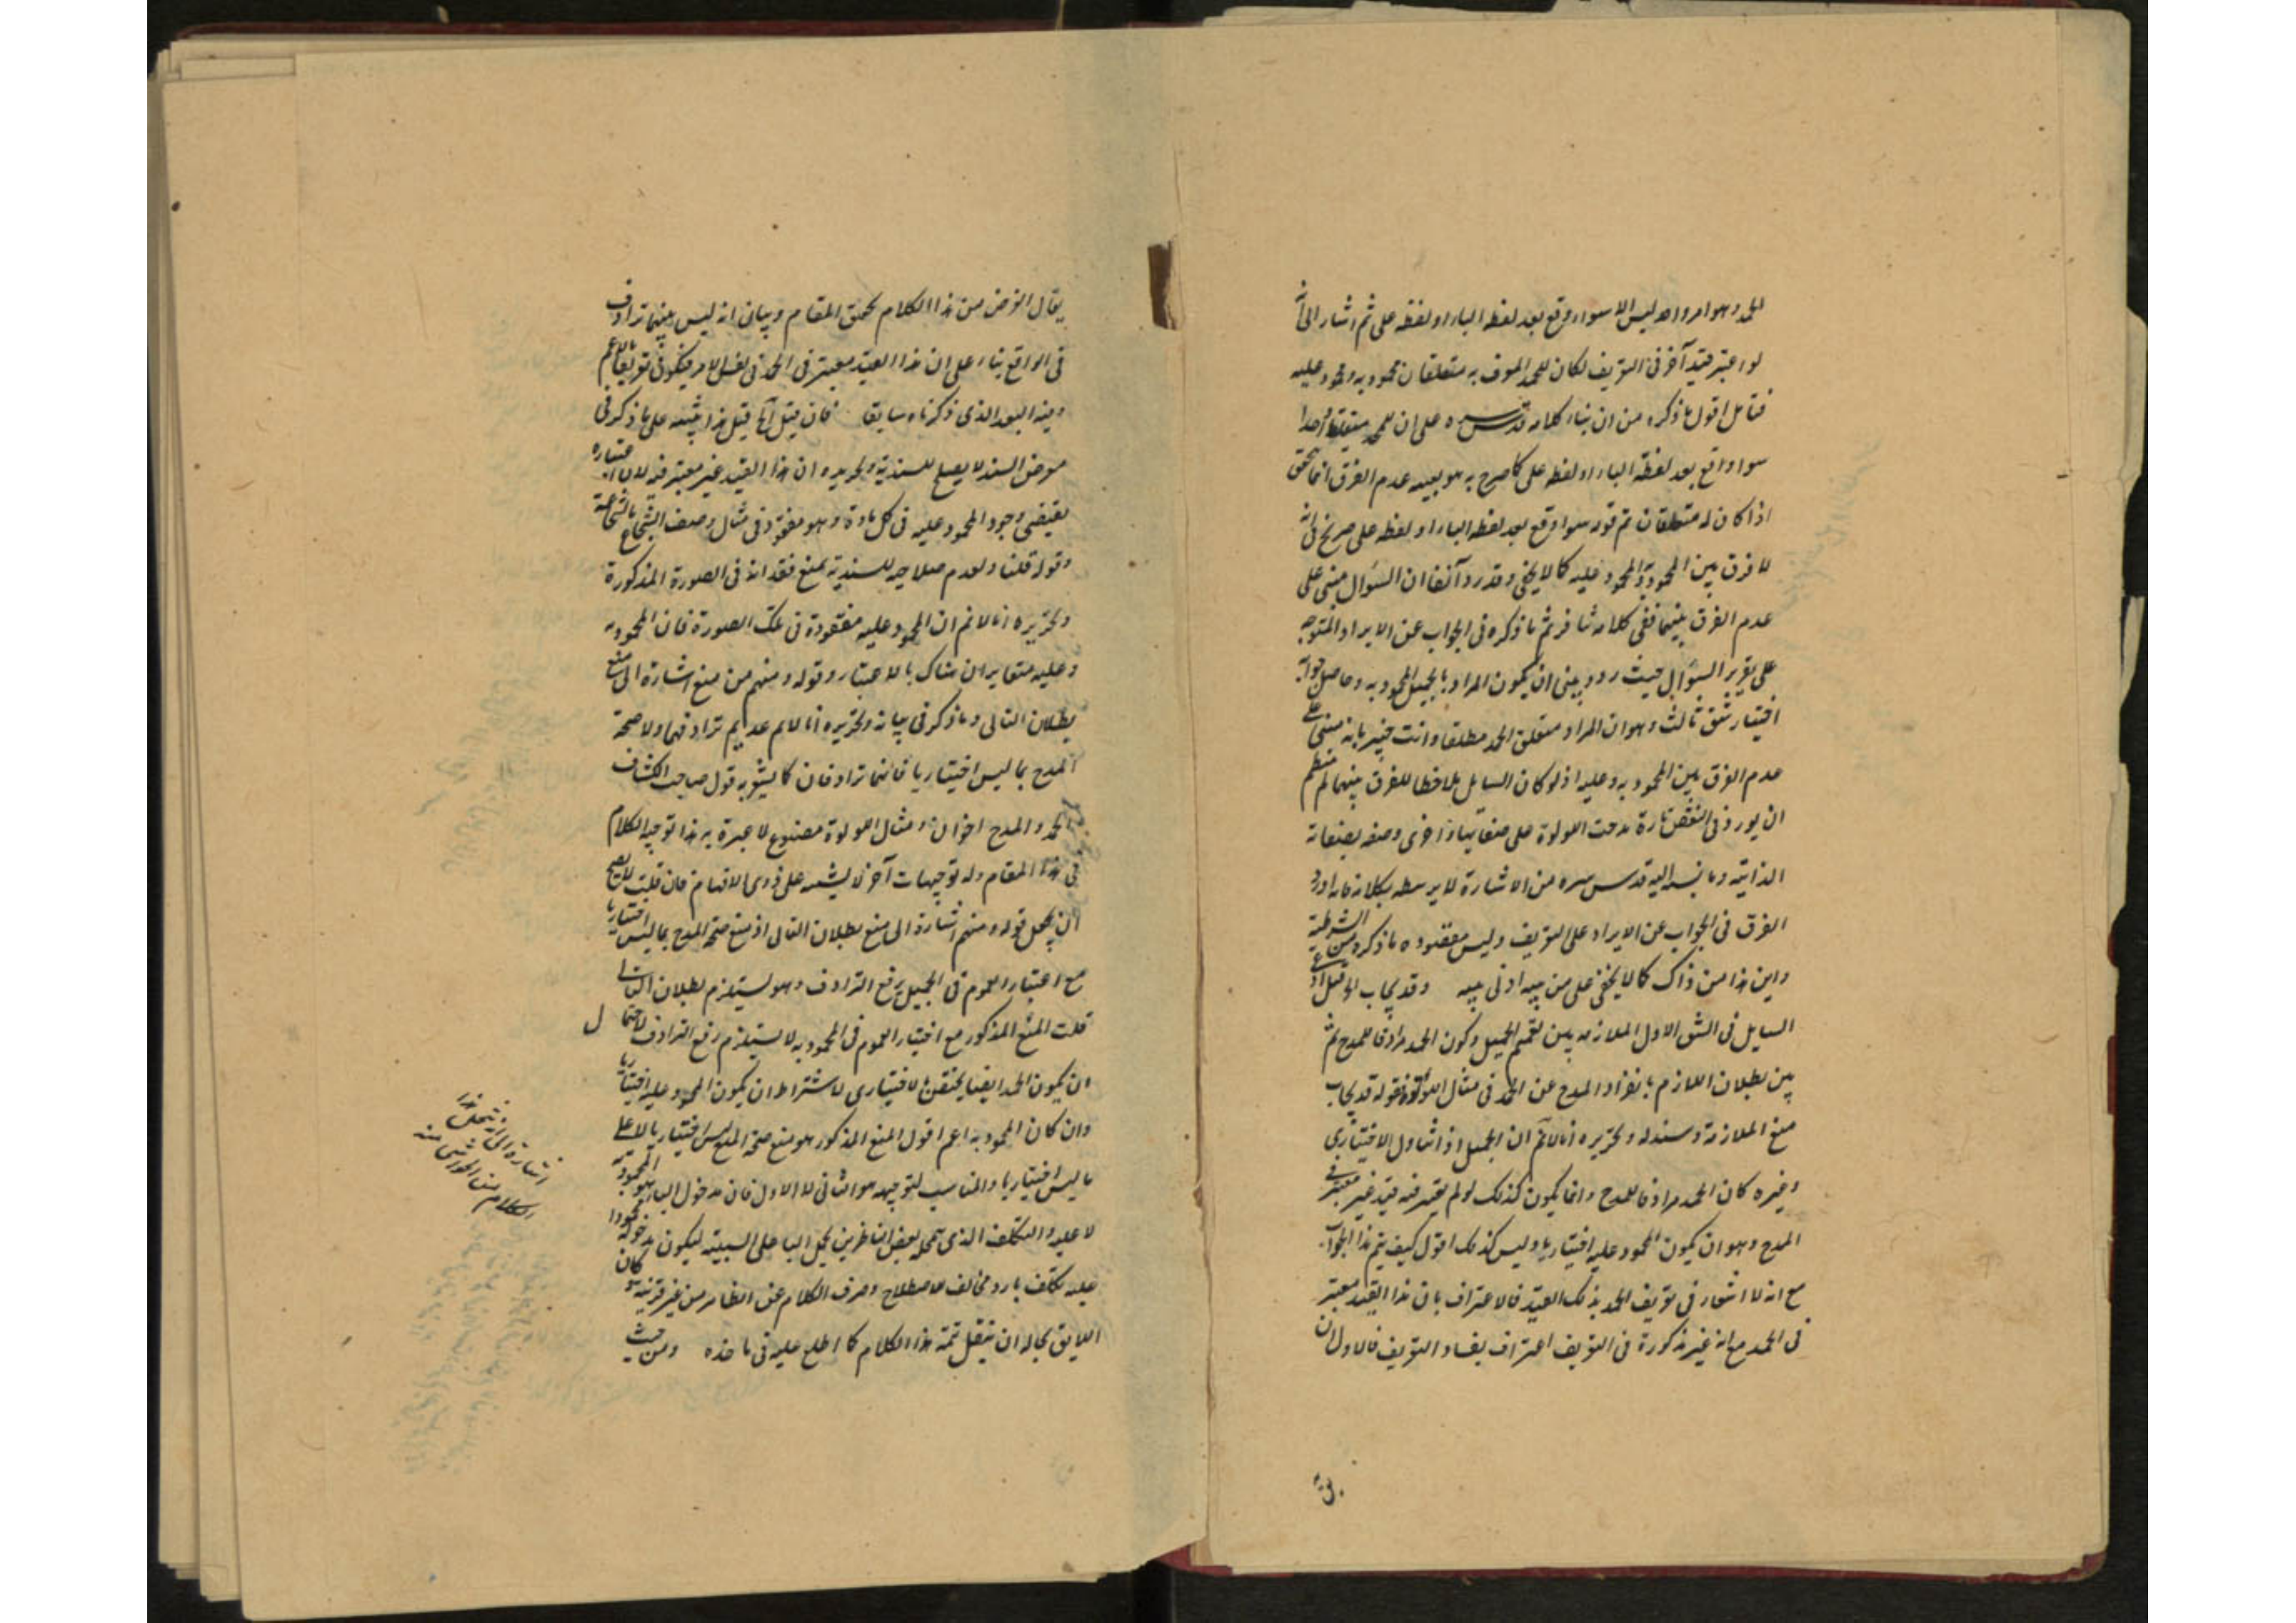 للحمد وهو امر واحد ليس الا سواء وقع بعد لفظ الباء او لفظ على ثم اشار الى انه
لو اعتبر قيد آخر في التعريف لكان للحمد المعرف به متعلقان محمود به ومحمود عليه
فتأمل اقول ما ذكره من ان بناء كلامه قدس سره على ان للحمد متعلقا واحدا
سواء وقع بعد لفظة الباء او لفظ على كما صرح به هو بعينه عدم الفرق انما يتحقق
اذا كان له متعلقان ثم قوله سواء وقع بعد لفظ الباء او لفظ على صريح في انه
لا فرق بين المحمود به والمحمود عليه كما لا يخفى وقد رد آنفا ان السؤال مبنى على
عدم الفرق بينهما ففي كلامه تنافر ثم ما ذكره في الجواب عن الايراد المتوجه
على تقرير السؤال حيث ردد بين ان يكون المراد بالجميل المحمود به وحاصل جوابه
اختيار شق ثالث وهو ان المراد متعلق الحمد مطلقا وانت خبير بانه مبنى على
عدم الفرق بين المحمود به وعليه اذ لو كان السايل ملاحظا للفرق بينهما لم ينتظم
ان يورد في النقض تارة مدحت اللولوة على صفائها واخرى وصفه بصفاته
الذاتية وما نسبه اليه قدس سره من الاشارة لا يرتبط بكلامه فانه اورد
الفرق في الجواب عن الايراد على التعريف وليس مقصوده ما ذكره من الشرطية
واين هذا من ذاك كما لا يخفى على من له ادنى وقد يجاب
السايل في الشق الاول الملازمه بين تعميم الجميل وكون الحمد مرادفا للمدح ثم
بين بطلان اللازم بانفراد المدح عن الحمد في مثال اللولوة فقوله قد يجاب
منع الملازمة وسنده وتحريره انا لا نم ان الجميل اذا تناول الاختيارى
وغيره كان الحمد مرادفا للمدح وانما يكون كذلك لو لم يعتبر فيه قيد غير معتبر في
المدح وهو ان يكون المحمود عليه اختياريا وليس كذلك اقول كيف يتم هذا الجواب
مع انه لا اشعار في تعريف الحمد بذلك القيد فالاعتراف بان هذا القيد معتبر
في الحمد مع انه غير مذكورة في التعريف اعتراف بفساد التعريف فالاولى ان
يقال الغرض من هذا الكلام تحقيق المقام وبيان انه ليس بينهما ترادف
في الواقع بناء على ان هذا القيد معتبر في الحمد في نفس الامر فيكون تعريفا بالاعم
وفيه البعد الذى ذكرناه سابقا فان قيل آه قيل هذا تنبيه على ما ذكر في
معرض السند لا يصلح للسندية وتحريره ان هذا القيد غير معتبر فيه لان اعتباره
يقتضى وجود المحمود عليه في كل مادة وهو مفقود في مثال وصف الشجاع بالشجاعة
وقوله قلنا ولعدم صلاحيه للسندية بمنع فقدانه في الصورة المذكورة
وتحريره انا لا نم ان المحمود عليه مفقودة في تلك الصورة فان المحمود به
وعليه متغايران هناك بالاعتبار وقوله ومنهم من منع اشارة الى منع
بطلان التالى وما ذكر في بيانه وتحريره انا لا نم عدم ترادفهما ولا صحة
المدح بما ليس اختياريا فانهما ترادفان كما يشعر به قول صاحب الكشاف
الحمد والمدح اخوان ومثال اللولوة مصنوع لا عبرة به هذا توجيه الكلام
في هذا المقام وله توجيهات آخر لا يشتبه على ذوى الافهام فان قلت لا يصح
ان يجعل قوله ومنهم اشارة الى منع بطلان التالى اذ منع صحة المدح بما ليس اختياريا
مع اعتبار العموم في الجميل يرفع الترادف وهو يستلزم بطلان التالى
قلت المنع المذكور مع اختيار العموم في المحمود به لا يستلزم رفع الترادف لاحتمال
ان يكون الحمد ايضا يختص بالاختيارى لاشتراط ان يكون المحمود عليه اختياريا
وان كان المحمود به اعم اقول المنع المذكور هو منع صحة المدح بما ليس اختياريا لا على
ما ليس اختياريا والمناسب لتوجيهه هو الثانى لا الاول فان مدخول الباء هو المحمود به
لا عليه والتكلف الذى تحمله بعض الناظرين بحمل الباء على السببيته ليكون مدخوله محمودا
عليه تكلف بارد مخالف للاصطلاح وصرف الكلام عن الظاهر من غير قرينة وكان
اللايق بحاله ان ينقل تتمة هذا الكلام كما اطلع عليه في ماخذه ومن حيث